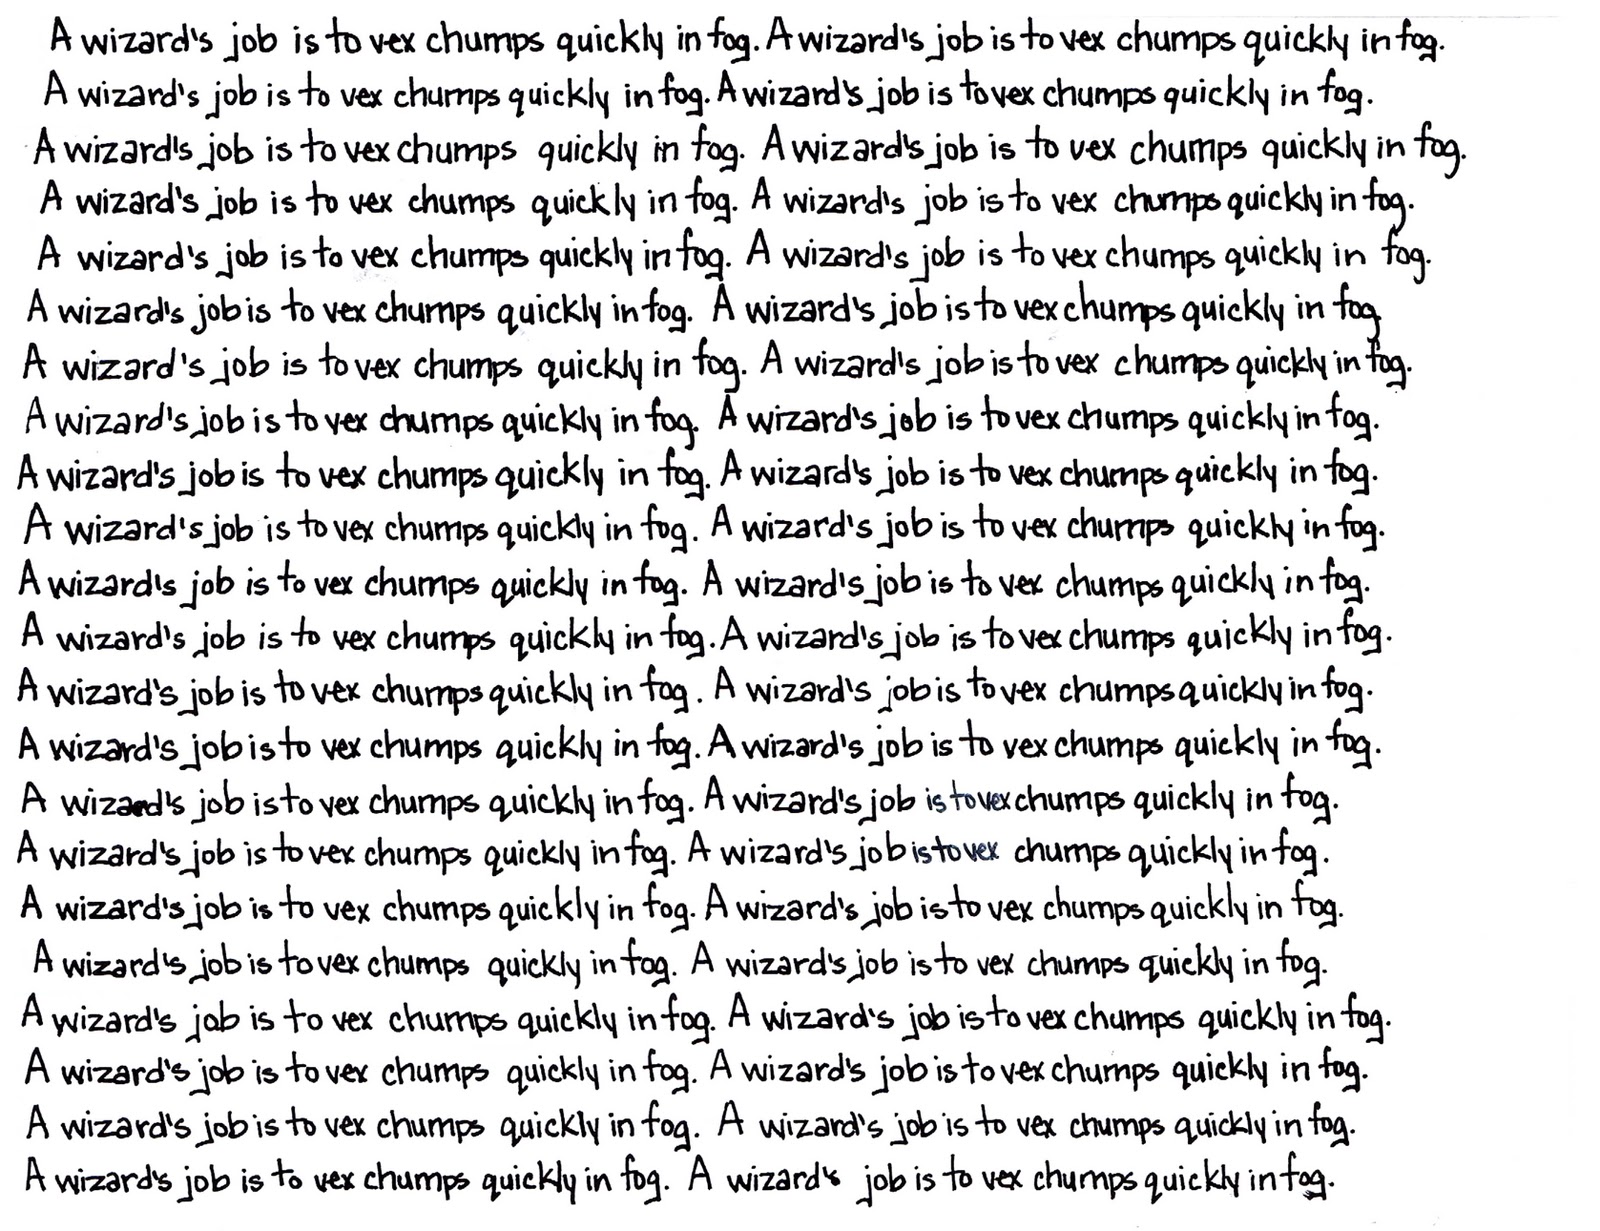 A wizard's job is to vex chumps quickly in fog. A wizard's job is to vex chumps quickly in fog.
A wizard's job is to vex chumps quickly in fog. A wizard's job is to vex chumps quickly in fog.
A wizard's job is to vex chumps quickly in fog. A wizard's job is to vex chumps quickly in fog.
A wizard's job is to vex chumps quickly in fog. A wizard's job is to vex chumps quickly in fog.
A wizard's job is to vex chumps quickly in fog. A wizard's job is to vex chumps quickly in fog.
A wizard's job is to vex chumps quickly in fog. A wizard's job is to vex chumps quickly in fog
A wizard's job is to vex chumps quickly in fog. A wizard's job is to vex chumps quickly in fog.
A wizard's job is to vex chumps quickly in fog. A wizard's job is to vex chumps quickly in fog.
A wizard's job is to vex chumps quickly in fog. A wizard's job is to vex chumps quickly in fog.
A wizard's job is to vex chumps quickly in fog. A wizard's job is to vex chumps quickly in fog.
A wizard's job is to vex chumps quickly in fog. A wizard's job is to vex chumps quickly in fog.
A wizard's job is to vex chumps quickly in fog. A wizard's job is to vex chumps quickly in fog.
A wizard's job is to vex chumps quickly in fog. A wizard's job is to vex chumps quickly in fog.
A wizard's job is to vex chumps quickly in fog. A wizard's job is to vex chumps quickly in fog.
A wizard's job is to vex chumps quickly in fog. A wizard's job is to vex chumps quickly in fog.
A wizard's job is to vex chumps quickly in fog. A wizard's job is to vex chumps quickly in fog.
A wizard's job is to vex chumps quickly in fog. A wizard's job is to vex chumps quickly in fog.
A wizard's job is to vex chumps quickly in fog. A wizard's job is to vex chumps quickly in fog.
A wizard's job is to vex chumps quickly in fog. A wizard's job is to vex chumps quickly in fog.
A wizard's job is to vex chumps quickly in fog. A wizard's job is to vex chumps quickly in fog.
A wizard's job is to vex chumps quickly in fog. A wizard's job is to vex chumps quickly in fog.
A wizard's job is to vex chumps quickly in fog. A wizard's job is to vex chumps quickly in fog.